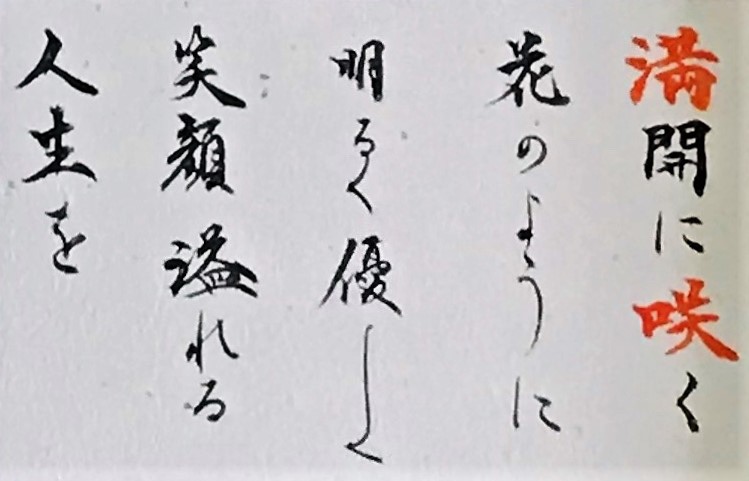 満開に咲く
花のように
明るく優しく
笑顔溢れる
人生を